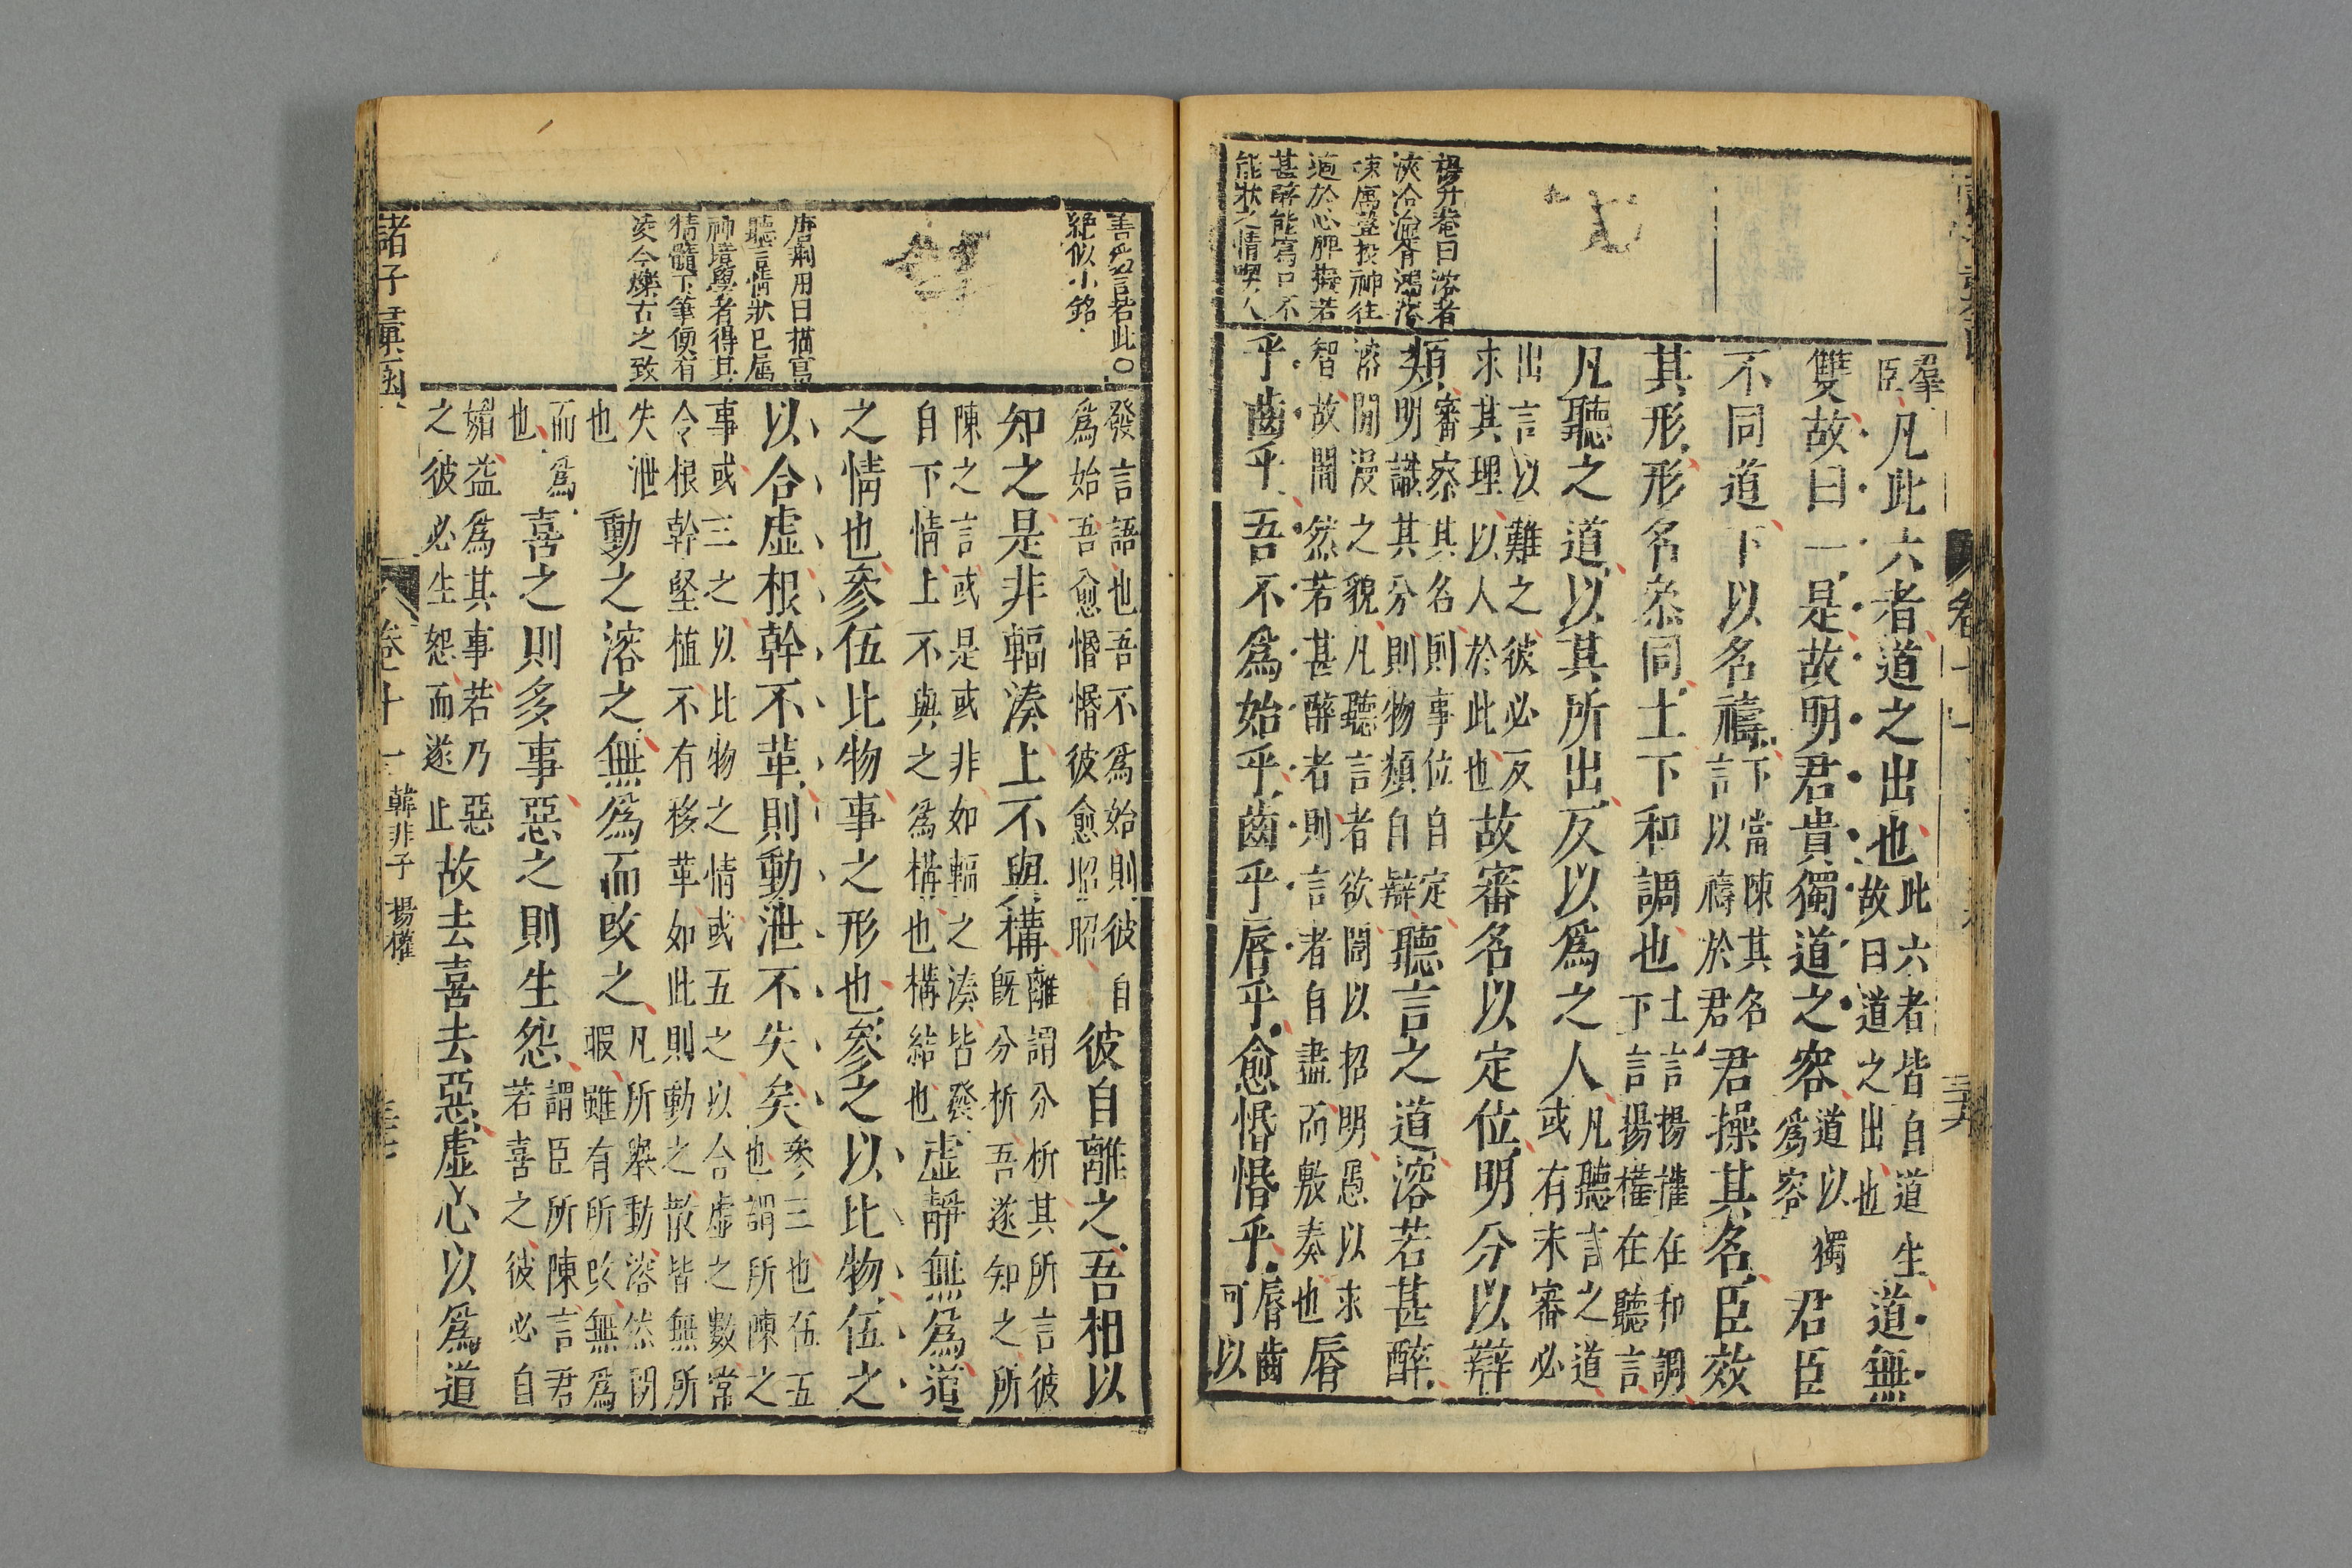 楊升菴曰溶者
甚醉能寫口不
能狀之情喫人
羣
臣
凡此六者道之出也
此六者皆自道生
故曰道之出也
道無
雙故曰一是故明君貴獨道之容
道以獨
爲容
君臣
不同道下以名禱
下當陳其名
言以禱於君
君操其名臣效
其形形名叅同上下和調也
上言揚權在和調
下言揚權在聽言
凡聽之道以其所出反以爲之人
凡聽言之道
或有未審必
出言以難之彼必反
求其理以人於此也
故審名以定位明分以辯
類
審察其名則事位自定
明識其分則物類自辯
聽言之道溶若甚醉
溶閒漫之貌凡聽言者欲闇以招明愚以求
智故闇然若甚醉者則言者自盡而敷奏也
脣
乎齒乎吾不爲始乎齒乎脣乎愈惛惛乎
脣齒
可以
善爲名言若此〇
絕似小銘
唐荆川曰描寫
聽言情狀已屆
神境學者得其
精髓下筆便有
凌今爍古之致
發言語也吾不爲始則彼自
爲始吾愈惛惛彼愈昭昭
彼自離之吾相以
知之是非輻湊上不與構
離謂分析其所言彼
旣分析吾遂知之所
陳之言或是或非如輻之湊皆發
自下情上不與之爲構也構結也
虛靜無爲道
之情也參伍比物事之形也參之以比物伍之
以合虛根幹不革則動泄不失矣
參三也伍五
也謂所陳之
事或三之以比物之情或五之以合虛之數常
令根幹堅植不有移革如此則動之散皆無所
失泄
也
動之溶之無爲而攺之
凡所舉動溶然閒
暇雖有所攺無爲
而爲
也
喜之則多事惡之則生怨
謂臣所陳言君
若喜之彼必自
媚益爲其事若乃惡
之彼必生怨而遂止
故去喜去惡虛心以爲道
諸子彙函 卷十一 韓非子 揚權